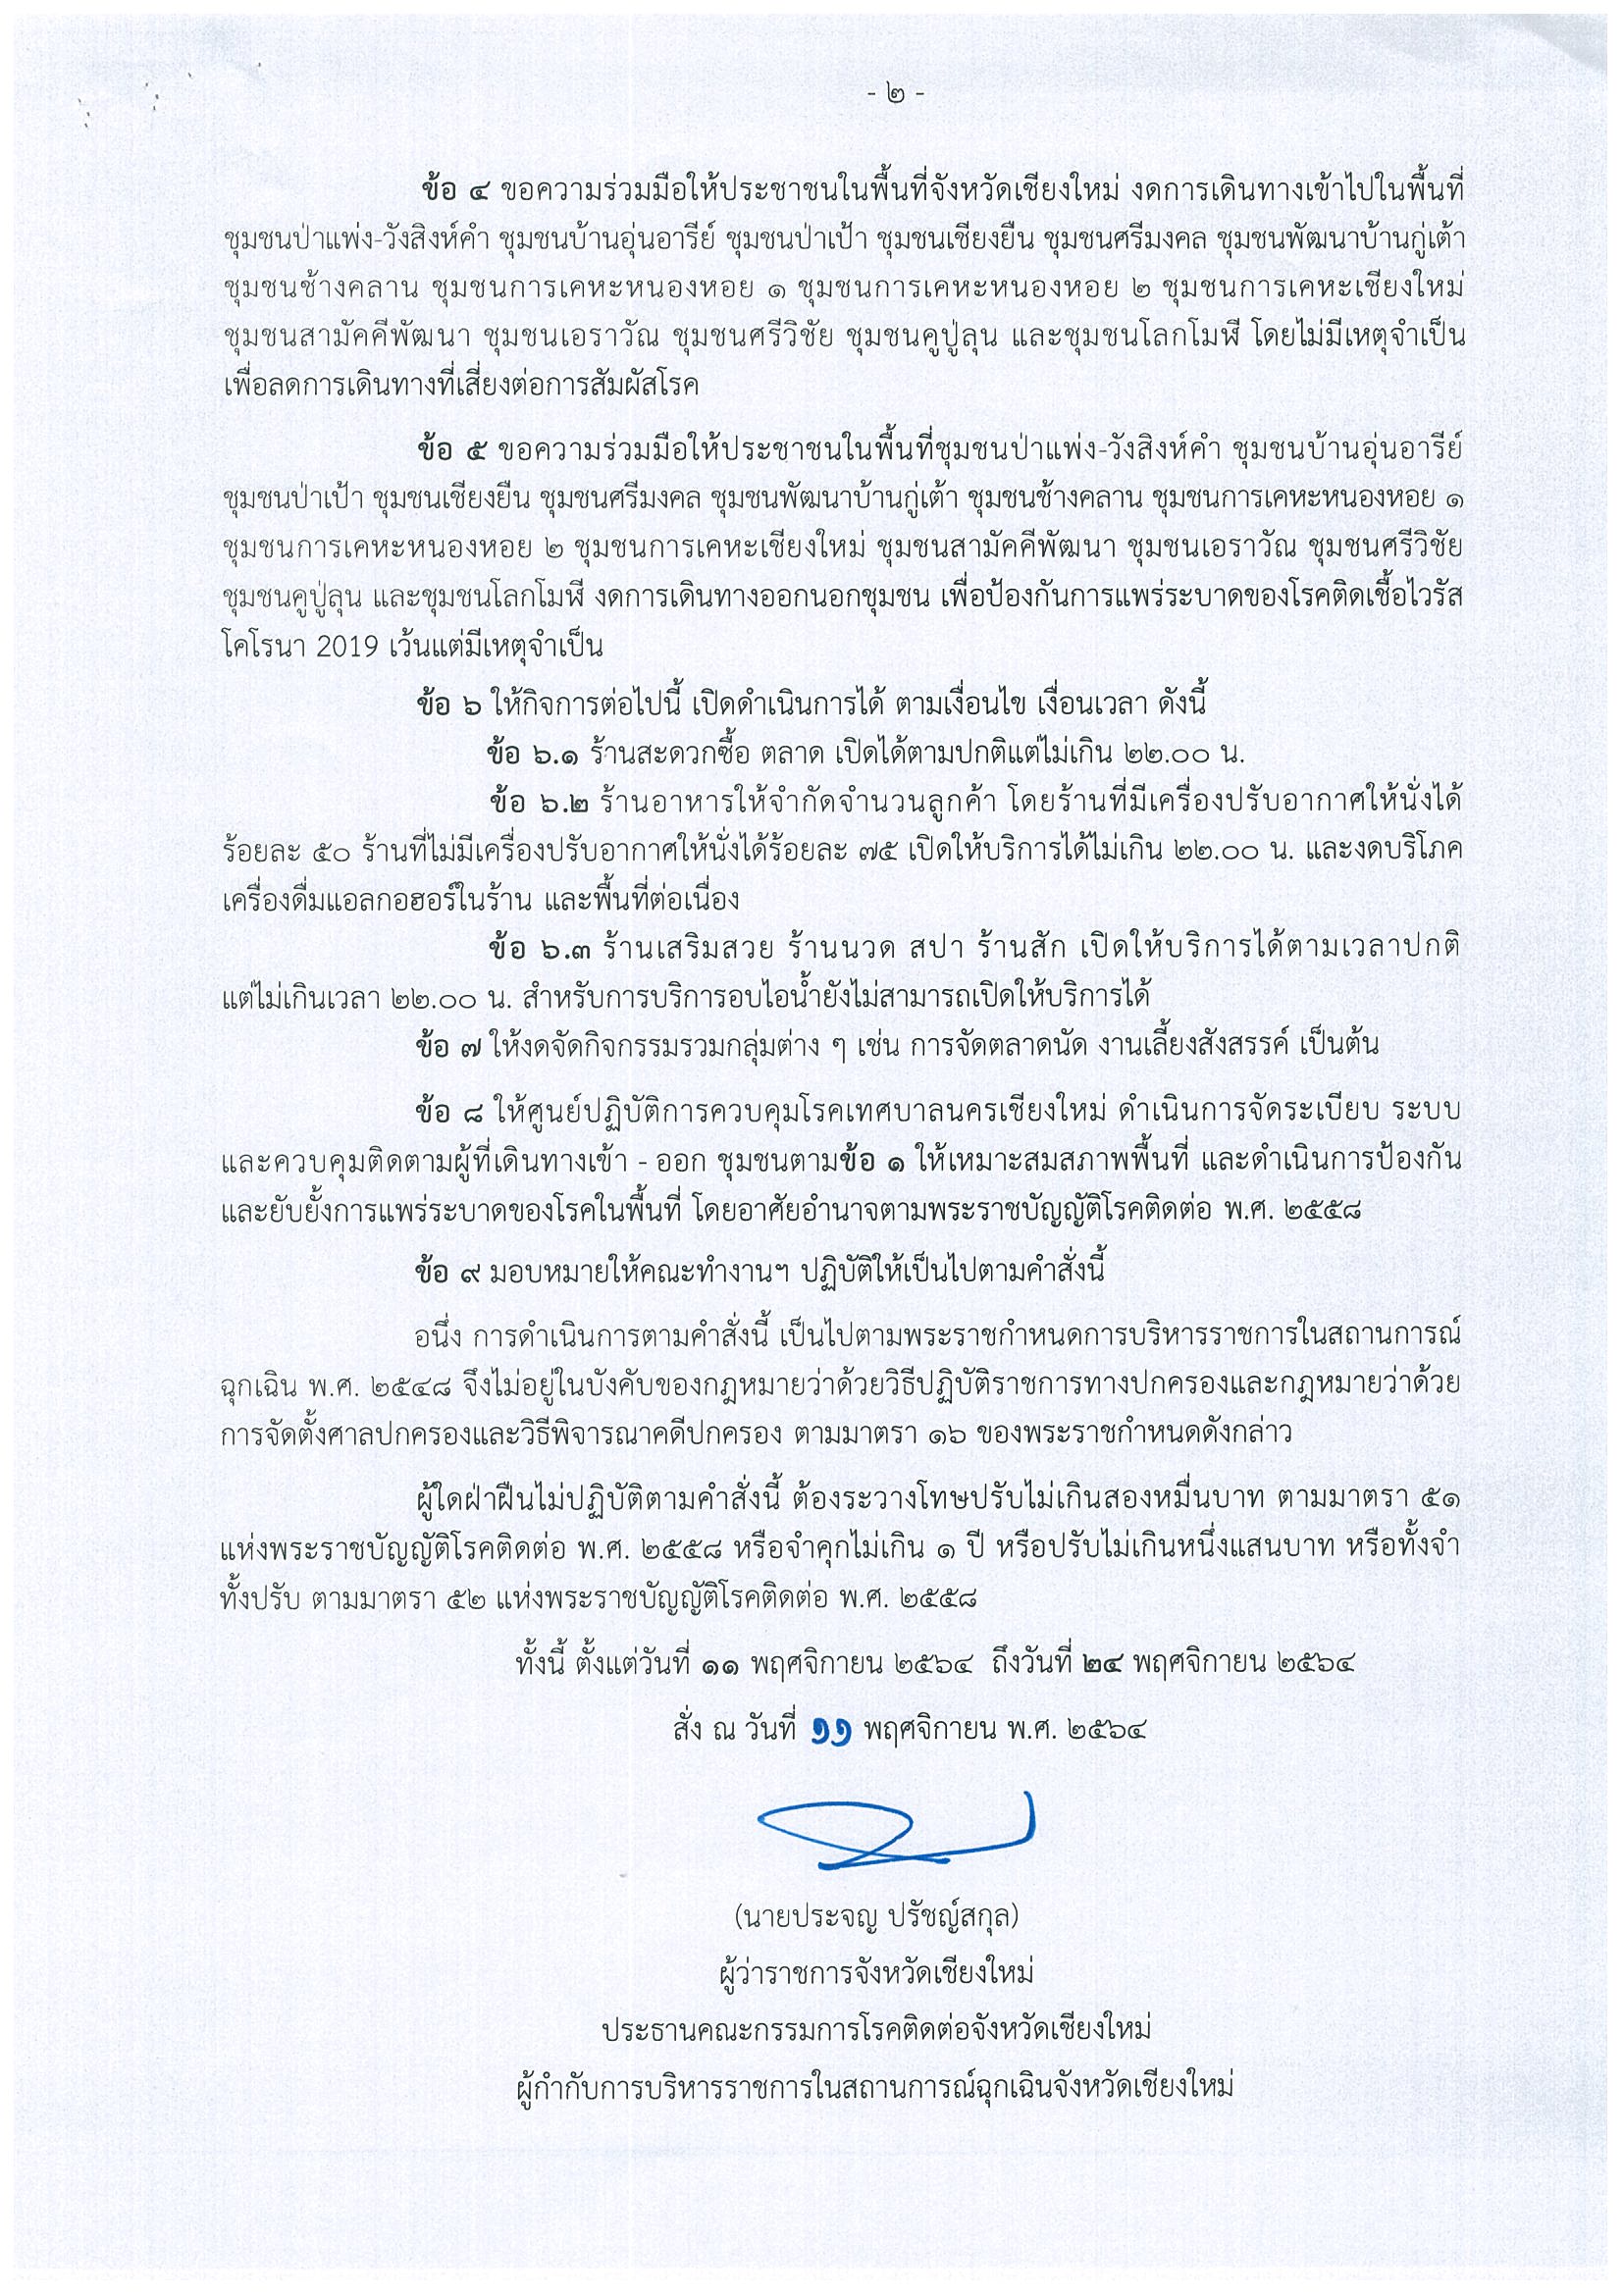 - ๒ -
ข้อ ๔ ขอความร่วมมือให้ประชาชนในพื้นที่จังหวัดเชียงใหม่ งดการเดินทางเข้าไปในพื้นที่
ชุมชนป่าแพ่ง-วังสิงห์คำ ชุมชนบ้านอุ่นอารีย์ ชุมชนป่าเป้า ชุมชนเชียงยืน ชุมชนศรีมงคล ชุมชนพัฒนาบ้านกู่เต้า
ชุมชนช้างคลาน ชุมชนการเคหะหนองหอย ๑ ชุมชนการเคหะหนองหอย ๒ ชุมชนการเคหะเชียงใหม่
ชุมชนสามัคคีพัฒนา ชุมชนเอราวัณ ชุมชนศรีวิชัย ชุมชนคูปู่ลุน และชุมชนโลกโมฬี โดยไม่มีเหตุจำเป็น
เพื่อลดการเดินทางที่เสี่ยงต่อการสัมผัสโรค
ข้อ ๕ ขอความร่วมมือให้ประชาชนในพื้นที่ชุมชนป่าแพ่ง-วังสิงห์คำ ชุมชนบ้านอุ่นอารีย์
ชุมชนป่าเป้า ชุมชนเชียงยืน ชุมชนศรีมงคล ชุมชนพัฒนาบ้านกู่เต้า ชุมชนช้างคลาน ชุมชนการเคหะหนองหอย ๑
ชุมชนการเคหะหนองหอย ๒ ชุมชนการเคหะเชียงใหม่ ชุมชนสามัคคีพัฒนา ชุมชนเอราวัณ ชุมชนศรีวิชัย
ชุมชนคูปู่ลุน และชุมชนโลกโมฬี งดการเดินทางออกนอกชุมชน เพื่อป้องกันการแพร่ระบาดของโรคติดเชื้อไวรัส
โคโรนา 2019 เว้นแต่มีเหตุจำเป็น
ข้อ ๖ ให้กิจการต่อไปนี้ เปิดดำเนินการได้ ตามเงื่อนไข เงื่อนเวลา ดังนี้
ข้อ ๖.๑ ร้านสะดวกซื้อ ตลาด เปิดได้ตามปกติแต่ไม่เกิน ๒๒.๐๐ น.
ข้อ ๖.๒ ร้านอาหารให้จำกัดจำนวนลูกค้า โดยร้านที่มีเครื่องปรับอากาศให้นั่งได้
ร้อยละ ๕๐ ร้านที่ไม่มีเครื่องปรับอากาศให้นั่งได้ร้อยละ ๗๕ เปิดให้บริการได้ไม่เกิน ๒๒.๐๐ น. และงดบริโภค
เครื่องดื่มแอลกอฮอร์ในร้าน และพื้นที่ต่อเนื่อง
ข้อ ๖.๓ ร้านเสริมสวย ร้านนวด สปา ร้านสัก เปิดให้บริการได้ตามเวลาปกติ
แต่ไม่เกินเวลา ๒๒.๐๐ น. สำหรับการบริการอบไอน้ำยังไม่สามารถเปิดให้บริการได้
ข้อ ๗ ให้งดจัดกิจกรรมรวมกลุ่มต่าง ๆ เช่น การจัดตลาดนัด งานเลี้ยงสังสรรค์ เป็นต้น
ข้อ ๘ ให้ศูนย์ปฏิบัติการควบคุมโรคเทศบาลนครเชียงใหม่ ดำเนินการจัดระเบียบ ระบบ
และควบคุมติดตามผู้ที่เดินทางเข้า - ออก ชุมชนตามข้อ ๑ ให้เหมาะสมสภาพพื้นที่ และดำเนินการป้องกัน
และยับยั้งการแพร่ระบาดของโรคในพื้นที่ โดยอาศัยอำนาจตามพระราชบัญญัติโรคติดต่อ พ.ศ. ๒๕๕๘
ข้อ ๙ มอบหมายให้คณะทำงานฯ ปฏิบัติให้เป็นไปตามคำสั่งนี้
อนึ่ง การดำเนินการตามคำสั่งนี้ เป็นไปตามพระราชกำหนดการบริหารราชการในสถานการณ์
ฉุกเฉิน พ.ศ. ๒๕๔๘ จึงไม่อยู่ในบังคับของกฎหมายว่าด้วยวิธีปฏิบัติราชการทางปกครองและกฎหมายว่าด้วย
การจัดตั้งศาลปกครองและวิธีพิจารณาคดีปกครอง ตามมาตรา ๑๖ ของพระราชกำหนดดังกล่าว
ผู้ใดฝ่าฝืนไม่ปฏิบัติตามคำสั่งนี้ ต้องระวางโทษปรับไม่เกินสองหมื่นบาท ตามมาตรา ๕๑
แห่งพระราชบัญญัติโรคติดต่อ พ.ศ. ๒๕๕๘ หรือจำคุกไม่เกิน ๑ ปี หรือปรับไม่เกินหนึ่งแสนบาท หรือทั้งจำ
ทั้งปรับ ตามมาตรา ๕๒ แห่งพระราชบัญญัติโรคติดต่อ พ.ศ. ๒๕๕๘
ทั้งนี้ ตั้งแต่วันที่ ๑๑ พฤศจิกายน ๒๕๖๔ ถึงวันที่ ๒๔ พฤศจิกายน ๒๕๖๔
สั่ง ณ วันที่ ๑๑ พฤศจิกายน พ.ศ. ๒๕๖๔
(นายประจญ ปรัชญ์สกุล)
ผู้ว่าราชการจังหวัดเชียงใหม่
ประธานคณะกรรมการโรคติดต่อจังหวัดเชียงใหม่
ผู้กำกับการบริหารราชการในสถานการณ์ฉุกเฉินจังหวัดเชียงใหม่